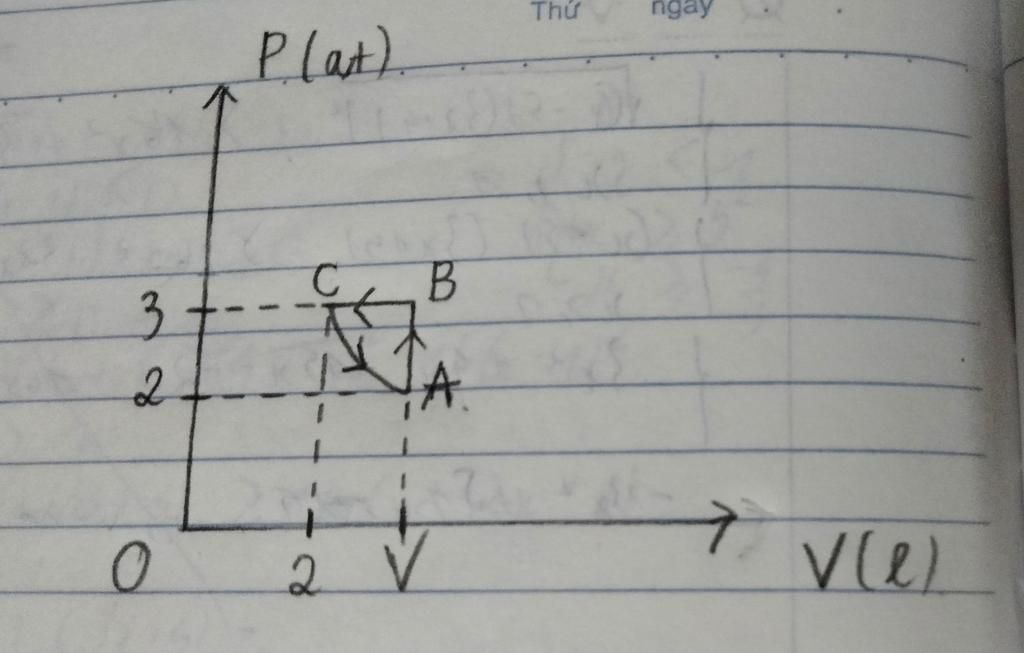 Thứ ngày
P (at)
C B
3
2 A
O 2 V V(l)